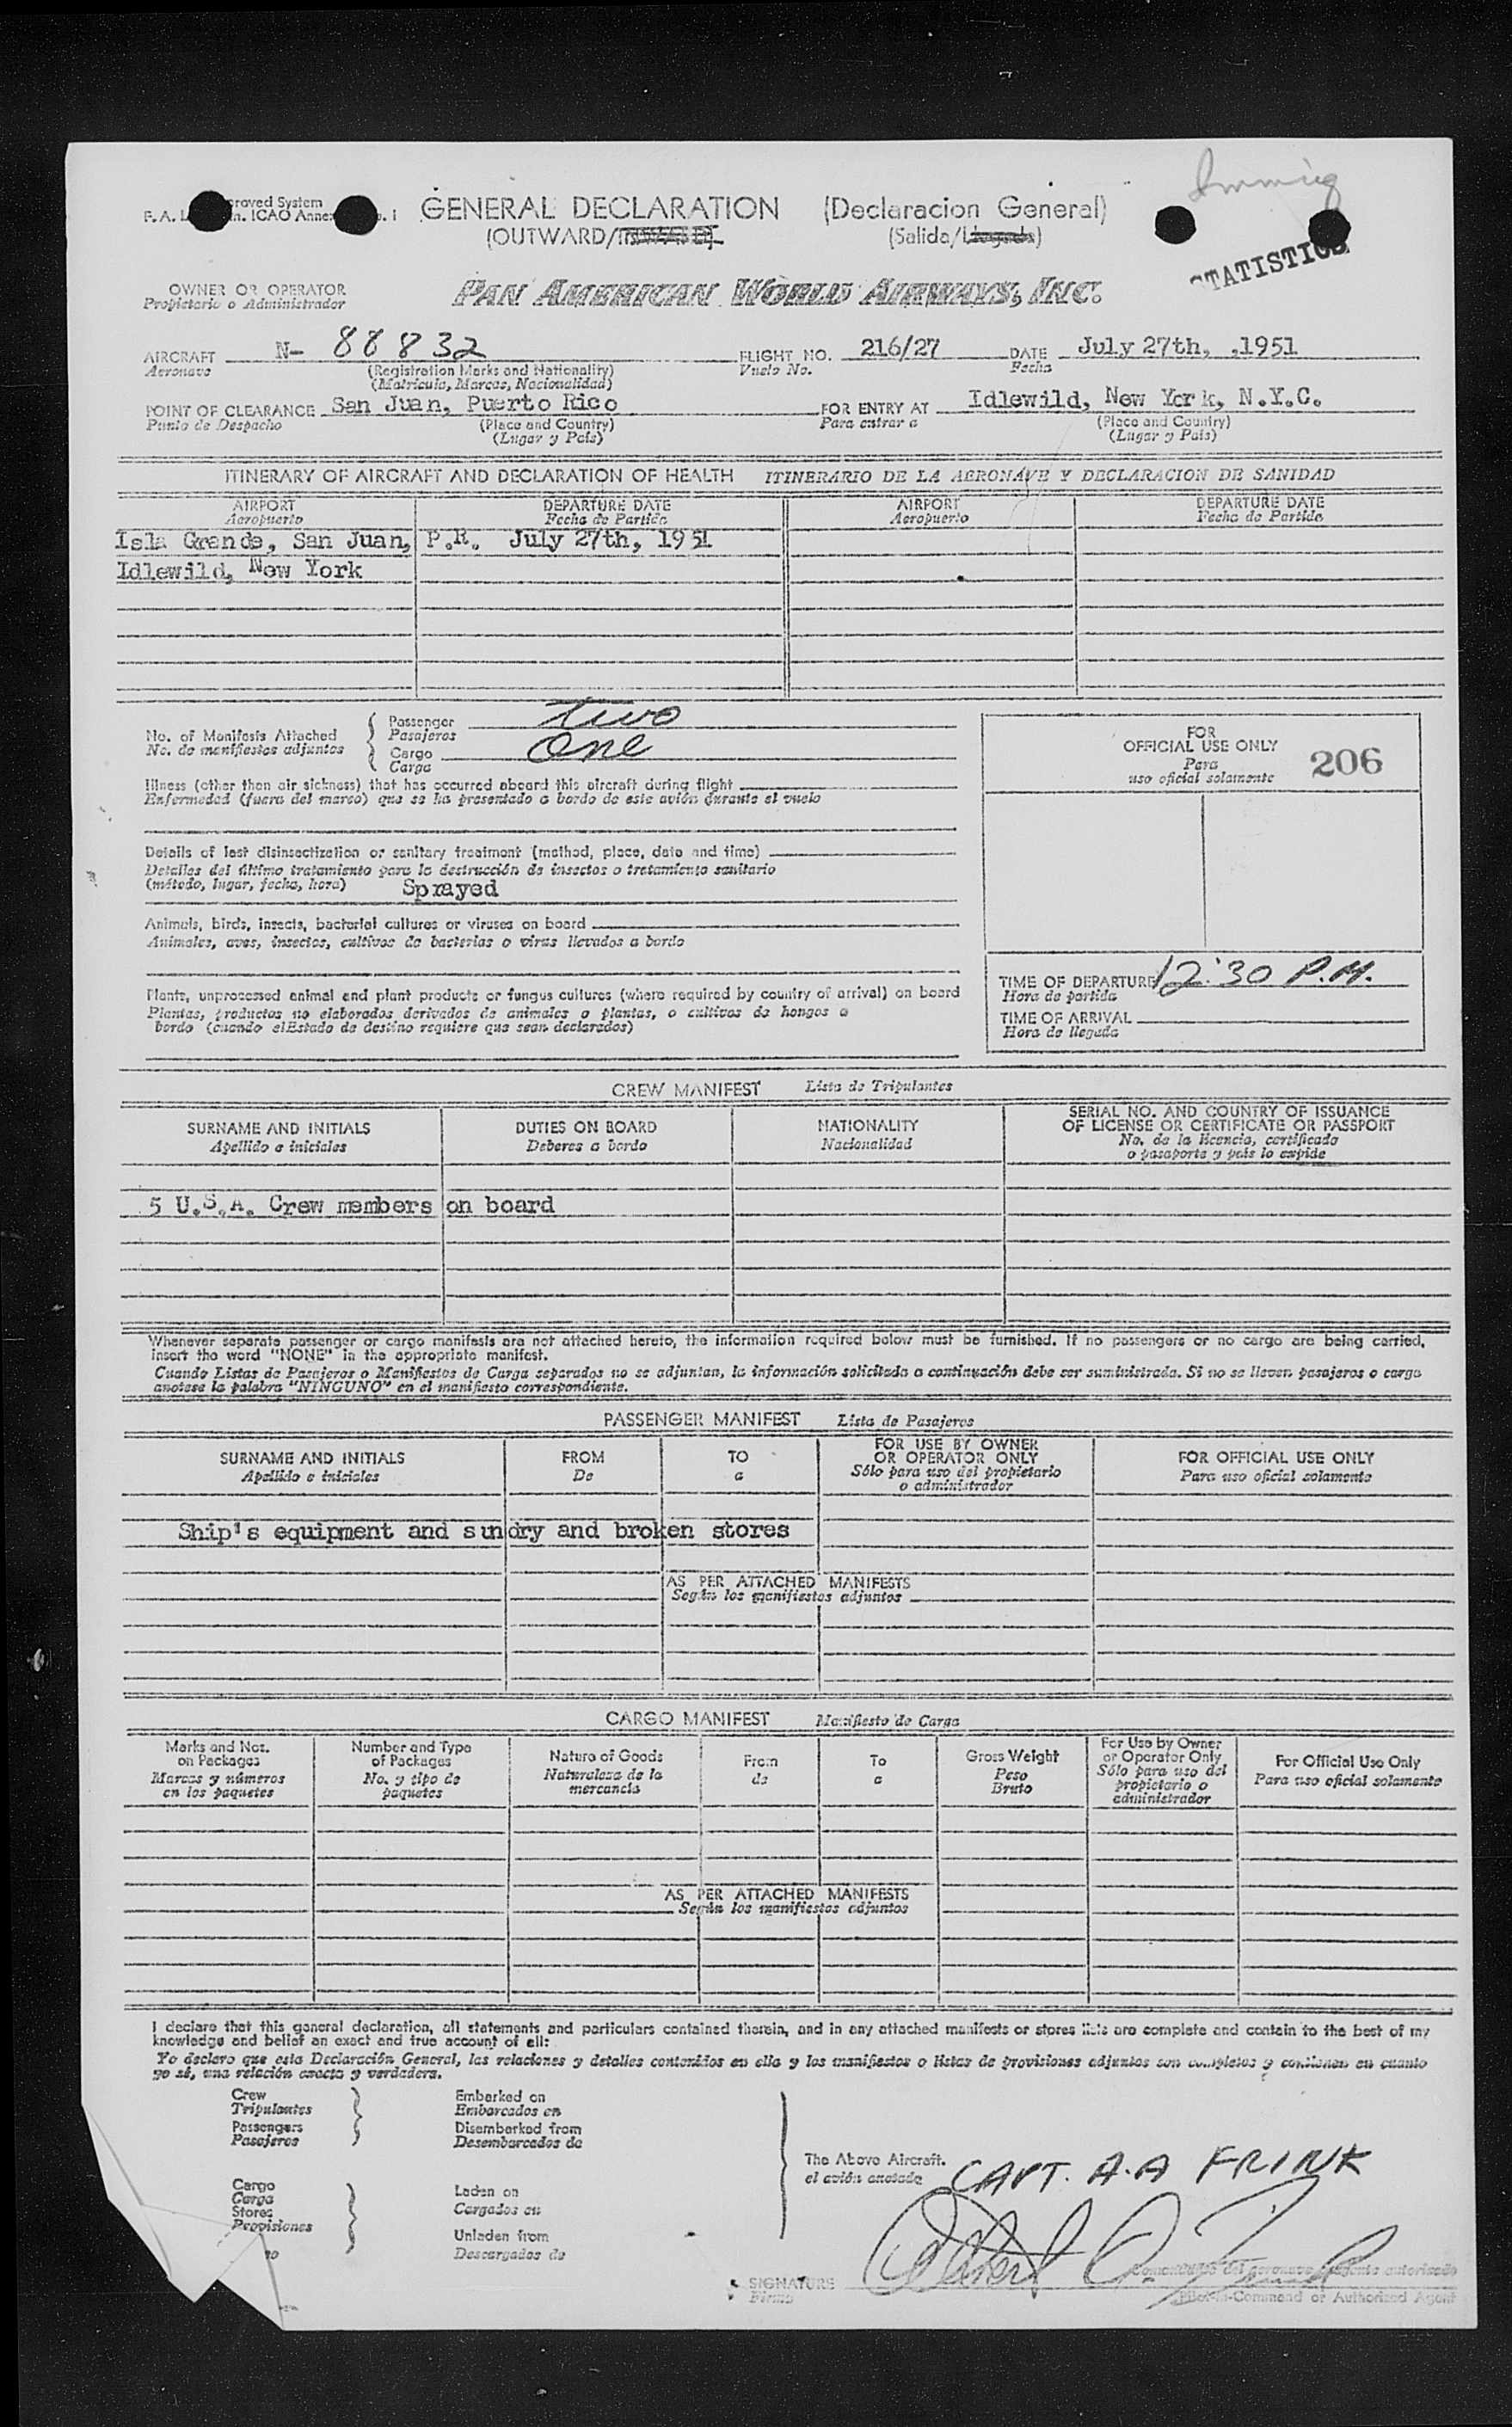 Immig
roved System
F. A. L. n. ICAO Annex . 1
GENERAL DECLARATION (Declaracion General)
(OUTWARD/INWARD) (Salida/Llegada)
STATISTICS
OWNER OR OPERATOR
Propietario o Administrador
PAN AMERICAN WORLD AIRWAYS, INC.
AIRCRAFT N- 88832 FLIGHT NO. 216/27 DATE July 27th, ,1951
Aeronave (Registration Marks and Nationality) Vuelo No. Fecha
(Matricula, Marcas, Nacionalidad)
POINT OF CLEARANCE San Juan, Puerto Rico FOR ENTRY AT Idlewild, New York, N.Y.C.
Punto de Despacho (Place and Country) Para entrar a (Place and Country)
(Lugar y País) (Lugar y País)
ITINERARY OF AIRCRAFT AND DECLARATION OF HEALTH ITINERARIO DE LA AERONAVE Y DECLARACION DE SANIDAD
AIRPORT DEPARTURE DATE AIRPORT DEPARTURE DATE
Aeropuerto Fecha de Partida Aeropuerto Fecha de Partida
Isla Grande, San Juan, P.R. July 27th, 1951
Idlewild, New York
No. of Manifests Attached
No. de manifiestos adjuntos
Passenger Two
Pasajeros
Cargo One
Carga
FOR
OFFICIAL USE ONLY
Para
uso oficial solamente
206
Illness (other than air sickness) that has occurred aboard this aircraft during flight
Enfermedad (fuera del mareo) que se ha presentado a bordo de este avión durante el vuelo
Details of last disinsectization or sanitary treatment (method, place, date and time)
Detalles del último tratamiento para la destrucción de insectos o tratamiento sanitario
(método, lugar, fecha, hora) Sprayed
Animals, birds, insects, bacterial cultures or viruses on board
Animales, aves, insectos, cultivos de bacterias o virus llevados a bordo
Plants, unprocessed animal and plant products or fungus cultures (where required by country of arrival) on board
Plantas, productos no elaborados derivados de animales o plantas, o cultivos de hongos a
bordo (cuando elEstado de destino requiere que sean declarados)
TIME OF DEPARTURE 12:30 P.M.
Hora de partida
TIME OF ARRIVAL
Hora de llegada
CREW MANIFEST Lista de Tripulantes
SURNAME AND INITIALS DUTIES ON BOARD NATIONALITY SERIAL NO. AND COUNTRY OF ISSUANCE
OF LICENSE OR CERTIFICATE OR PASSPORT
Apellido e iniciales Deberes a bordo Nacionalidad No. de la licencia, certificado
o pasaporte y país lo expide
5 U.S.A. Crew members on board
Whenever separate passenger or cargo manifests are not attached hereto, the information required below must be furnished. If no passengers or no cargo are being carried,
insert the word "NONE" in the appropriate manifest.
Cuando Listas de Pasajeros o Manifiestos de Carga separados no se adjuntan, la información solicitada a continuación debe ser suministrada. Si no se llevan pasajeros o carga
anotese la palabra "NINGUNO" en el manifiesto correspondiente.
PASSENGER MANIFEST Lista de Pasajeros
SURNAME AND INITIALS FROM TO FOR USE BY OWNER
OR OPERATOR ONLY FOR OFFICIAL USE ONLY
Apellido e iniciales De a Sólo para uso del propietario
o administrador Para uso oficial solamente
Ship's equipment and sundry and broken stores
AS PER ATTACHED MANIFESTS
Según los manifiestos adjuntos
CARGO MANIFEST Manifiesto de Carga
Marks and Nos.
on Packages
Marcas y números
en los paquetes
Number and Type
of Packages
No. y tipo de
paquetes
Nature of Goods
Naturaleza de la
mercancía
From
de
To
a
Gross Weight
Peso
Bruto
For Use by Owner
or Operator Only
Sólo para uso del
propietario o
administrador
For Official Use Only
Para uso oficial solamente
AS PER ATTACHED MANIFESTS
Según los manifiestos adjuntos
I declare that this general declaration, all statements and particulars contained therein, and in any attached manifests or stores lists are complete and contain to the best of my
knowledge and belief an exact and true account of all:
Yo declaro que esta Declaración General, las relaciones y detalles contenidos en ella y los manifiestos o listas de provisiones adjuntos son completos y contienen en cuanto
yo sé, una relación exacta y verdadera.
Crew
Tripulantes
Passengers
Pasajeros
Embarked on
Embarcados en
Disembarked from
Desembarcados de
Cargo
Carga
Stores
Provisiones
Laden on
Cargados en
Unladen from
Descargados de
The Above Aircraft.
el avión anotado
CAPT. A.A FRINK
Albert A. Frink
SIGNATURE
Firma
Comandante del aeronave o agente autorizado
Pilot-in-Command or Authorized Agent